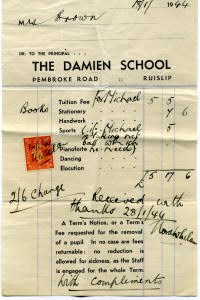 Mrs Brown 18/1/1944
DR. TO THE PRINCIPAL
THE DAMIEN SCHOOL
PEMBROKE ROAD RUISLIP
Tuition Fee for Michael 5 5
Books Stationery 7 6
Handwork
Sports (if Michael 5
Pianoforte
Dancing
Elocution
£ 5 17 6
2/6 Change Received with
thanks 28/1/44
A Term's Notice, or a Term's
Fee requested for the removal
of a pupil. In no case are fees
returnable: no reduction is
allowed for sickness, as the Staff
is engaged for the whole Term.
With compliments